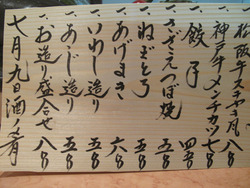 一、松阪牛ステーキ月八〇〇
一、神戸牛メンチカツ七〇〇
一、餃子四五〇
一、さざえつぼ焼五〇〇
一、ねぎとろ五〇〇
一、あげまき六〇〇
一、いわし造り五〇〇
一、あじ造り五〇〇
一、お造り盛合せ八〇〇
七月九日酒肴